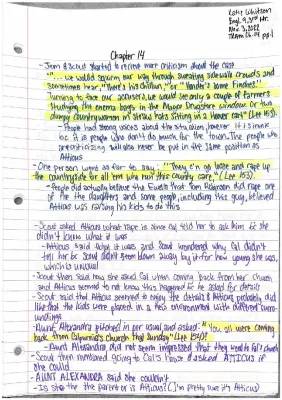 Katie Whitson
Engl. 9, 3rd Hr.
Nov 3, 2022
Chapter 14
- Jem & Scout started to receive more criticism about the case
"... we would squirm our way through sweating sidewalk crowds and
sometimes hear, "There's his chillun," or "Yonder's some Finches."
Turning to face our accusers, we would see only a couple of farmers
studying the enema bags in the Mayco Drugstore window. Or two
dumpy countrywomen in straw hats sitting in a Hoover cart" (Lee 153).
- People had strong voices about the situation, however it is ironic
bc it is people who don't do much for the town. The people who
are criticizing will also never be put in the same position as
Atticus
- One person went as far to say, "They c'n go loose and rape up
the countryside for all 'em who run this county care," (Lee 153).
- People did actually believe the Ewells that Tom Robinson did rape one
of the daughters and some people, including this guy, believed
Atticus was raising his kids to do this
- Scout asked Atticus what rape is since Cal told her to ask him if she
didn't know what it was
- Atticus said what it was and Scout wondered why Cal didn't
tell her bc Scout didn't seem blown away by it for how young she was,
which is unusual
- Scout then said how she asked Cal when coming back from her church
and Atticus seemed to not know this happened bc he asked for details
- Scout said that Atticus seemed to enjoy the details & Atticus probably did
like that the kids were placed in a new environment with different
surroundings
- Aunt Alexandra pitched in per usual and asked: "You all were coming
back from Calpurnia's church that Sunday" (Lee 154)?
- Aunt Alexandra did not seem impressed that they went to Cal's church
- Scout then mentioned going to Cal's house & asked ATTICUS if she
could
- AUNT ALEXANDRA said she couldn't
- Is she the parent or is Atticus? (I'm pretty sure it's Atticus)